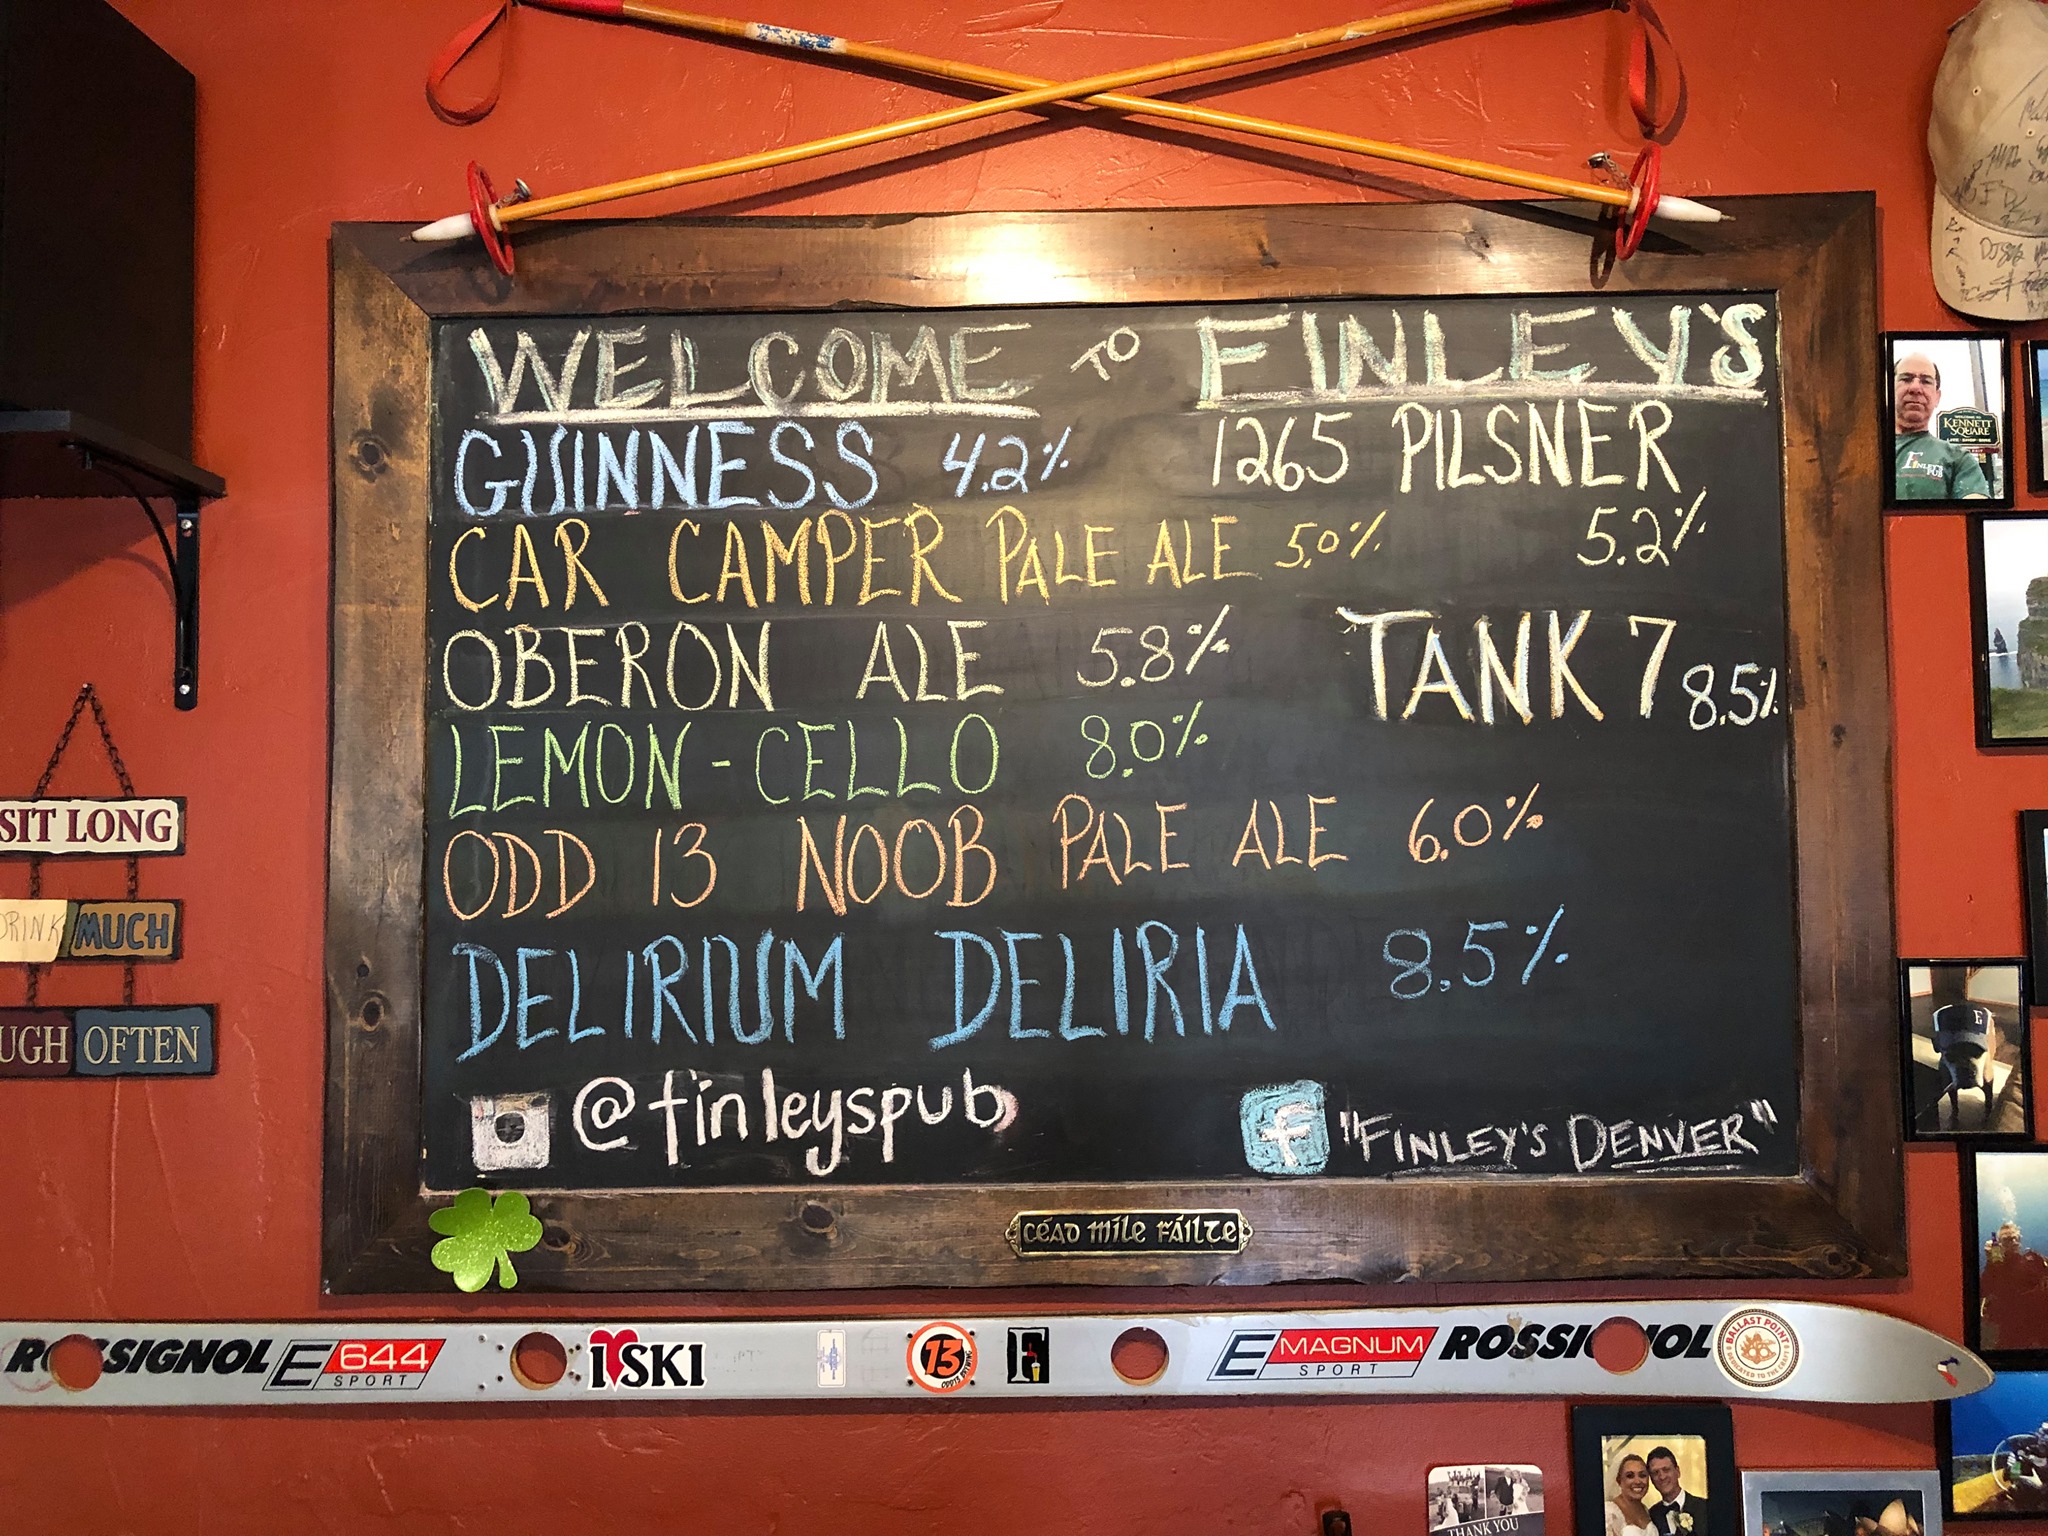 WELCOME TO FINLEY'S
GUINNESS 4.2%
1265 PILSNER
5.2%
CAR CAMPER PALE ALE 5.0%
OBERON ALE 5.8%
TANK 7 8.5%
LEMON-CELLO 8.0%
ODD 13 NOOB PALE ALE 6.0%
DELIRIUM DELIRIA 8.5%
@finleyspub
f "FINLEY'S DENVER"
CÉAD MÍLE FÁILTE
SIT LONG
DRINK MUCH
UGH OFTEN
WELCOME TO
KENNETT
SQUARE
FINLEY'S
PUB
ROSSIGNOL E 644
SPORT
I SKI
13
ODD13 BREWING
F
E MAGNUM
SPORT
ROSSIGNOL
BALLAST POINT
DEDICATED TO THE CRAFT
THANK YOU